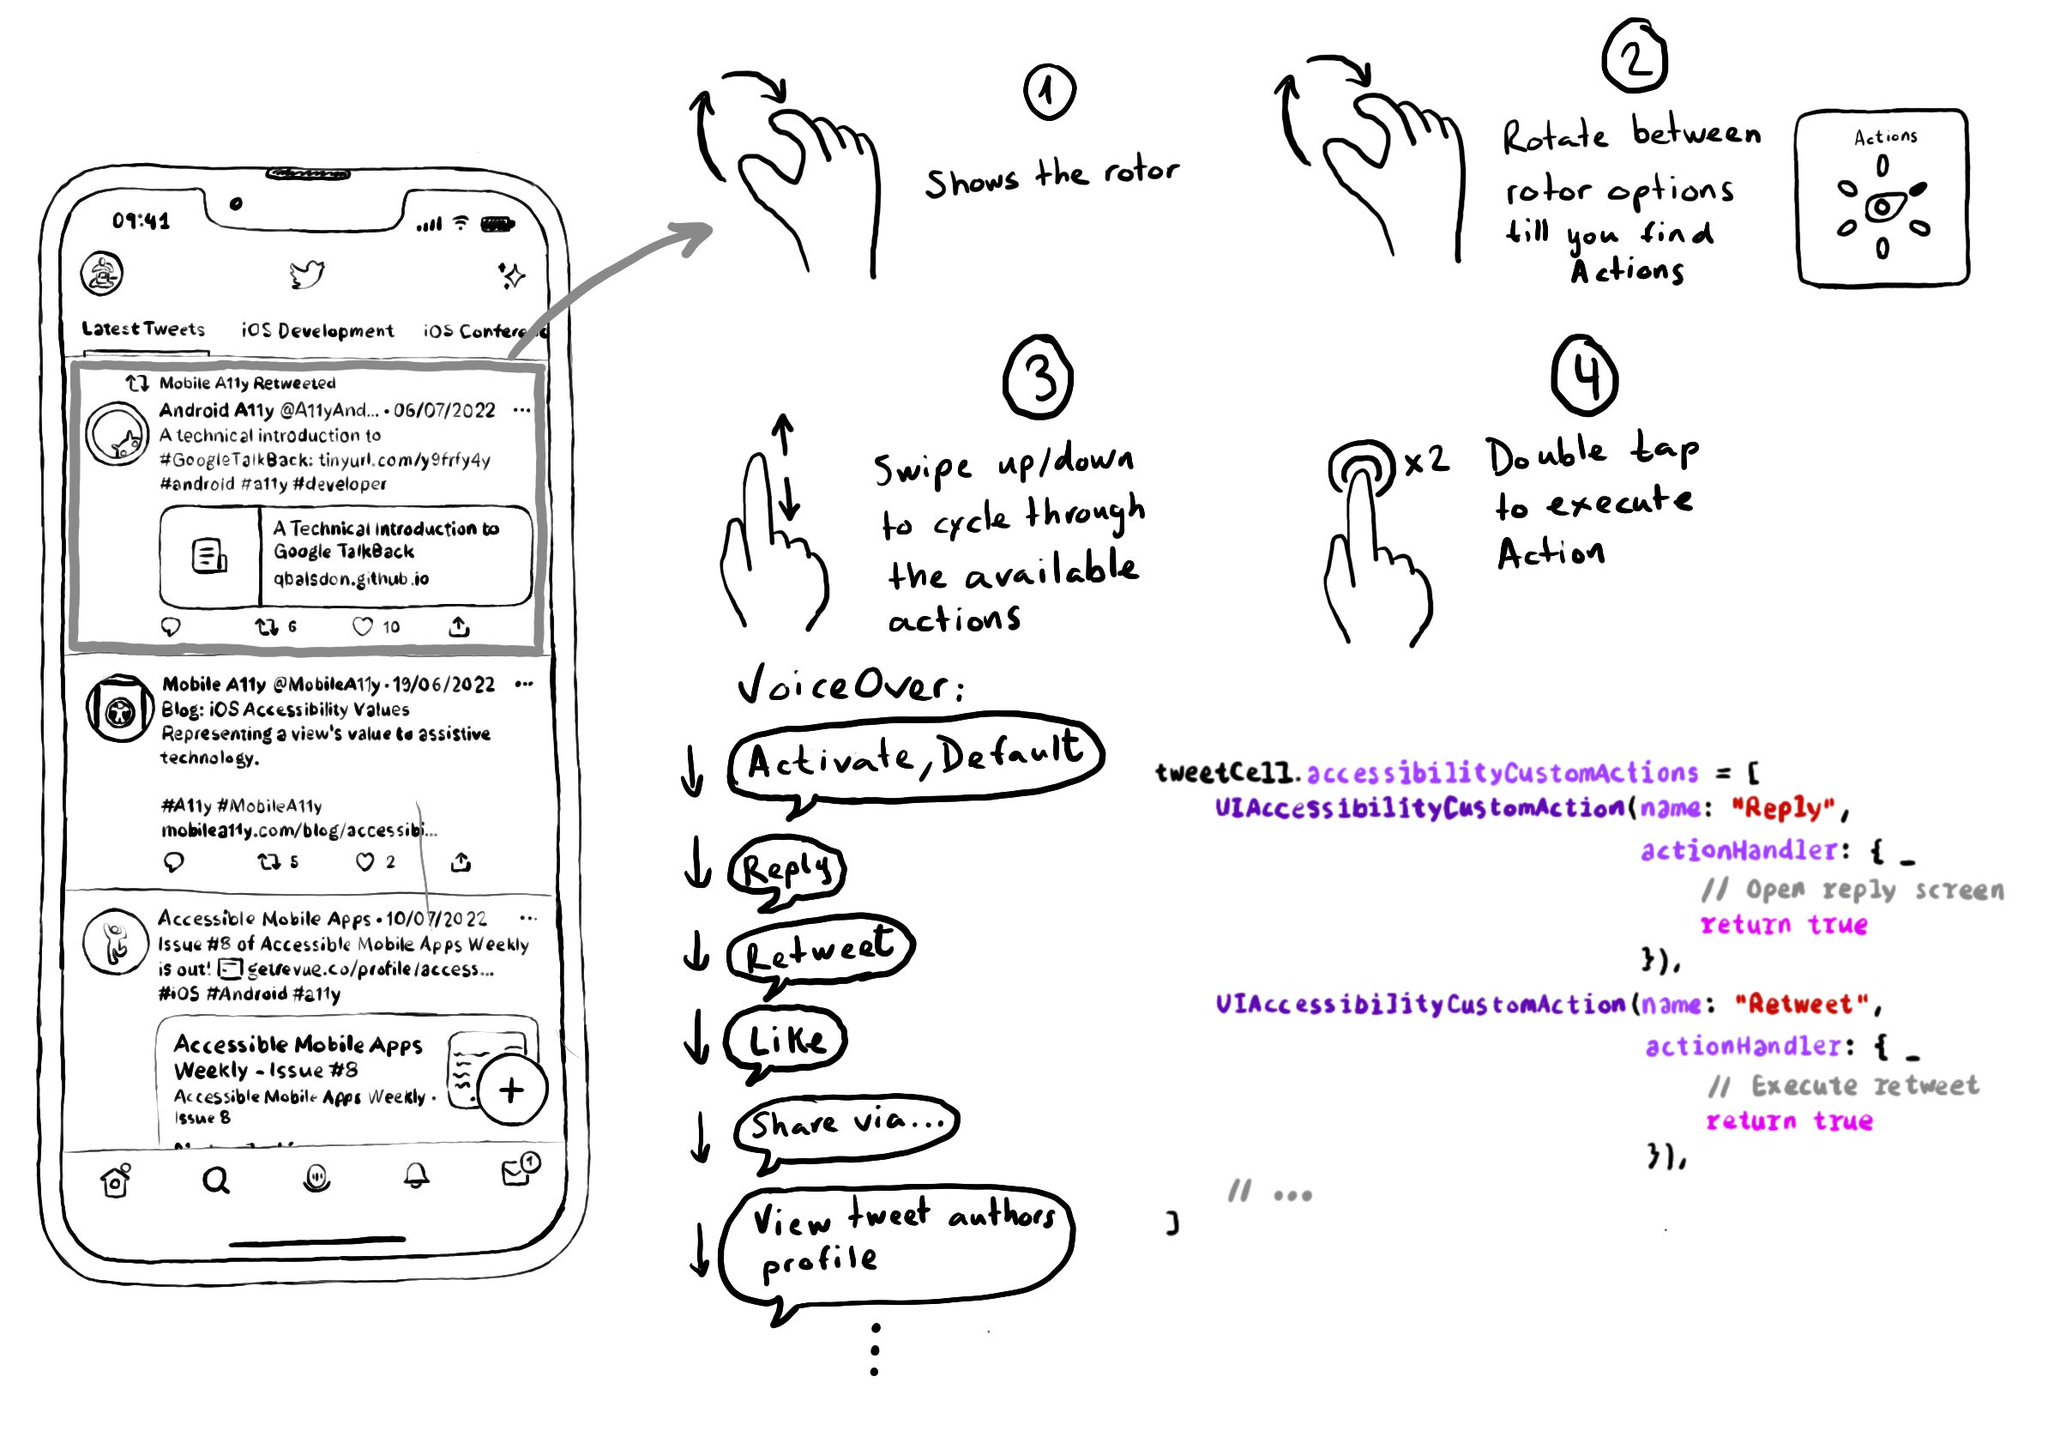 09:41
Latest Tweets iOS Development iOS Conferenc
Mobile A11y Retweeted
Android A11y @A11yAnd... • 06/07/2022 ...
A technical introduction to
#GoogleTalkBack: tinyurl.com/y9frfy4y
#android #a11y #developer
A Technical Introduction to
Google TalkBack
qbalsdon.github.io
6 10
Mobile A11y @MobileA11y • 19/06/2022 ...
Blog: iOS Accessibility Values
Representing a view's value to assistive
technology.
#A11y #MobileA11y
mobilea11y.com/blog/accessibi...
5 2
Accessible Mobile Apps • 10/07/2022 ...
Issue #8 of Accessible Mobile Apps Weekly
is out! getrevue.co/profile/access...
#iOS #Android #a11y
Accessible Mobile Apps
Weekly - Issue #8
Accessible Mobile Apps Weekly •
Issue 8
+
1
1
Shows the rotor
2
Rotate between
rotor options
till you find
Actions
Actions
3
Swipe up/down
to cycle through
the available
actions
4
x2
Double tap
to execute
Action
VoiceOver:
Activate, Default
Reply
Retweet
Like
Share via...
View tweet authors
profile
tweetCell.accessibilityCustomActions = [
UIAccessibilityCustomAction(name: "Reply",
actionHandler: { _
// Open reply screen
return true
}),
UIAccessibilityCustomAction(name: "Retweet",
actionHandler: { _
// Execute retweet
return true
}),
// ...
]